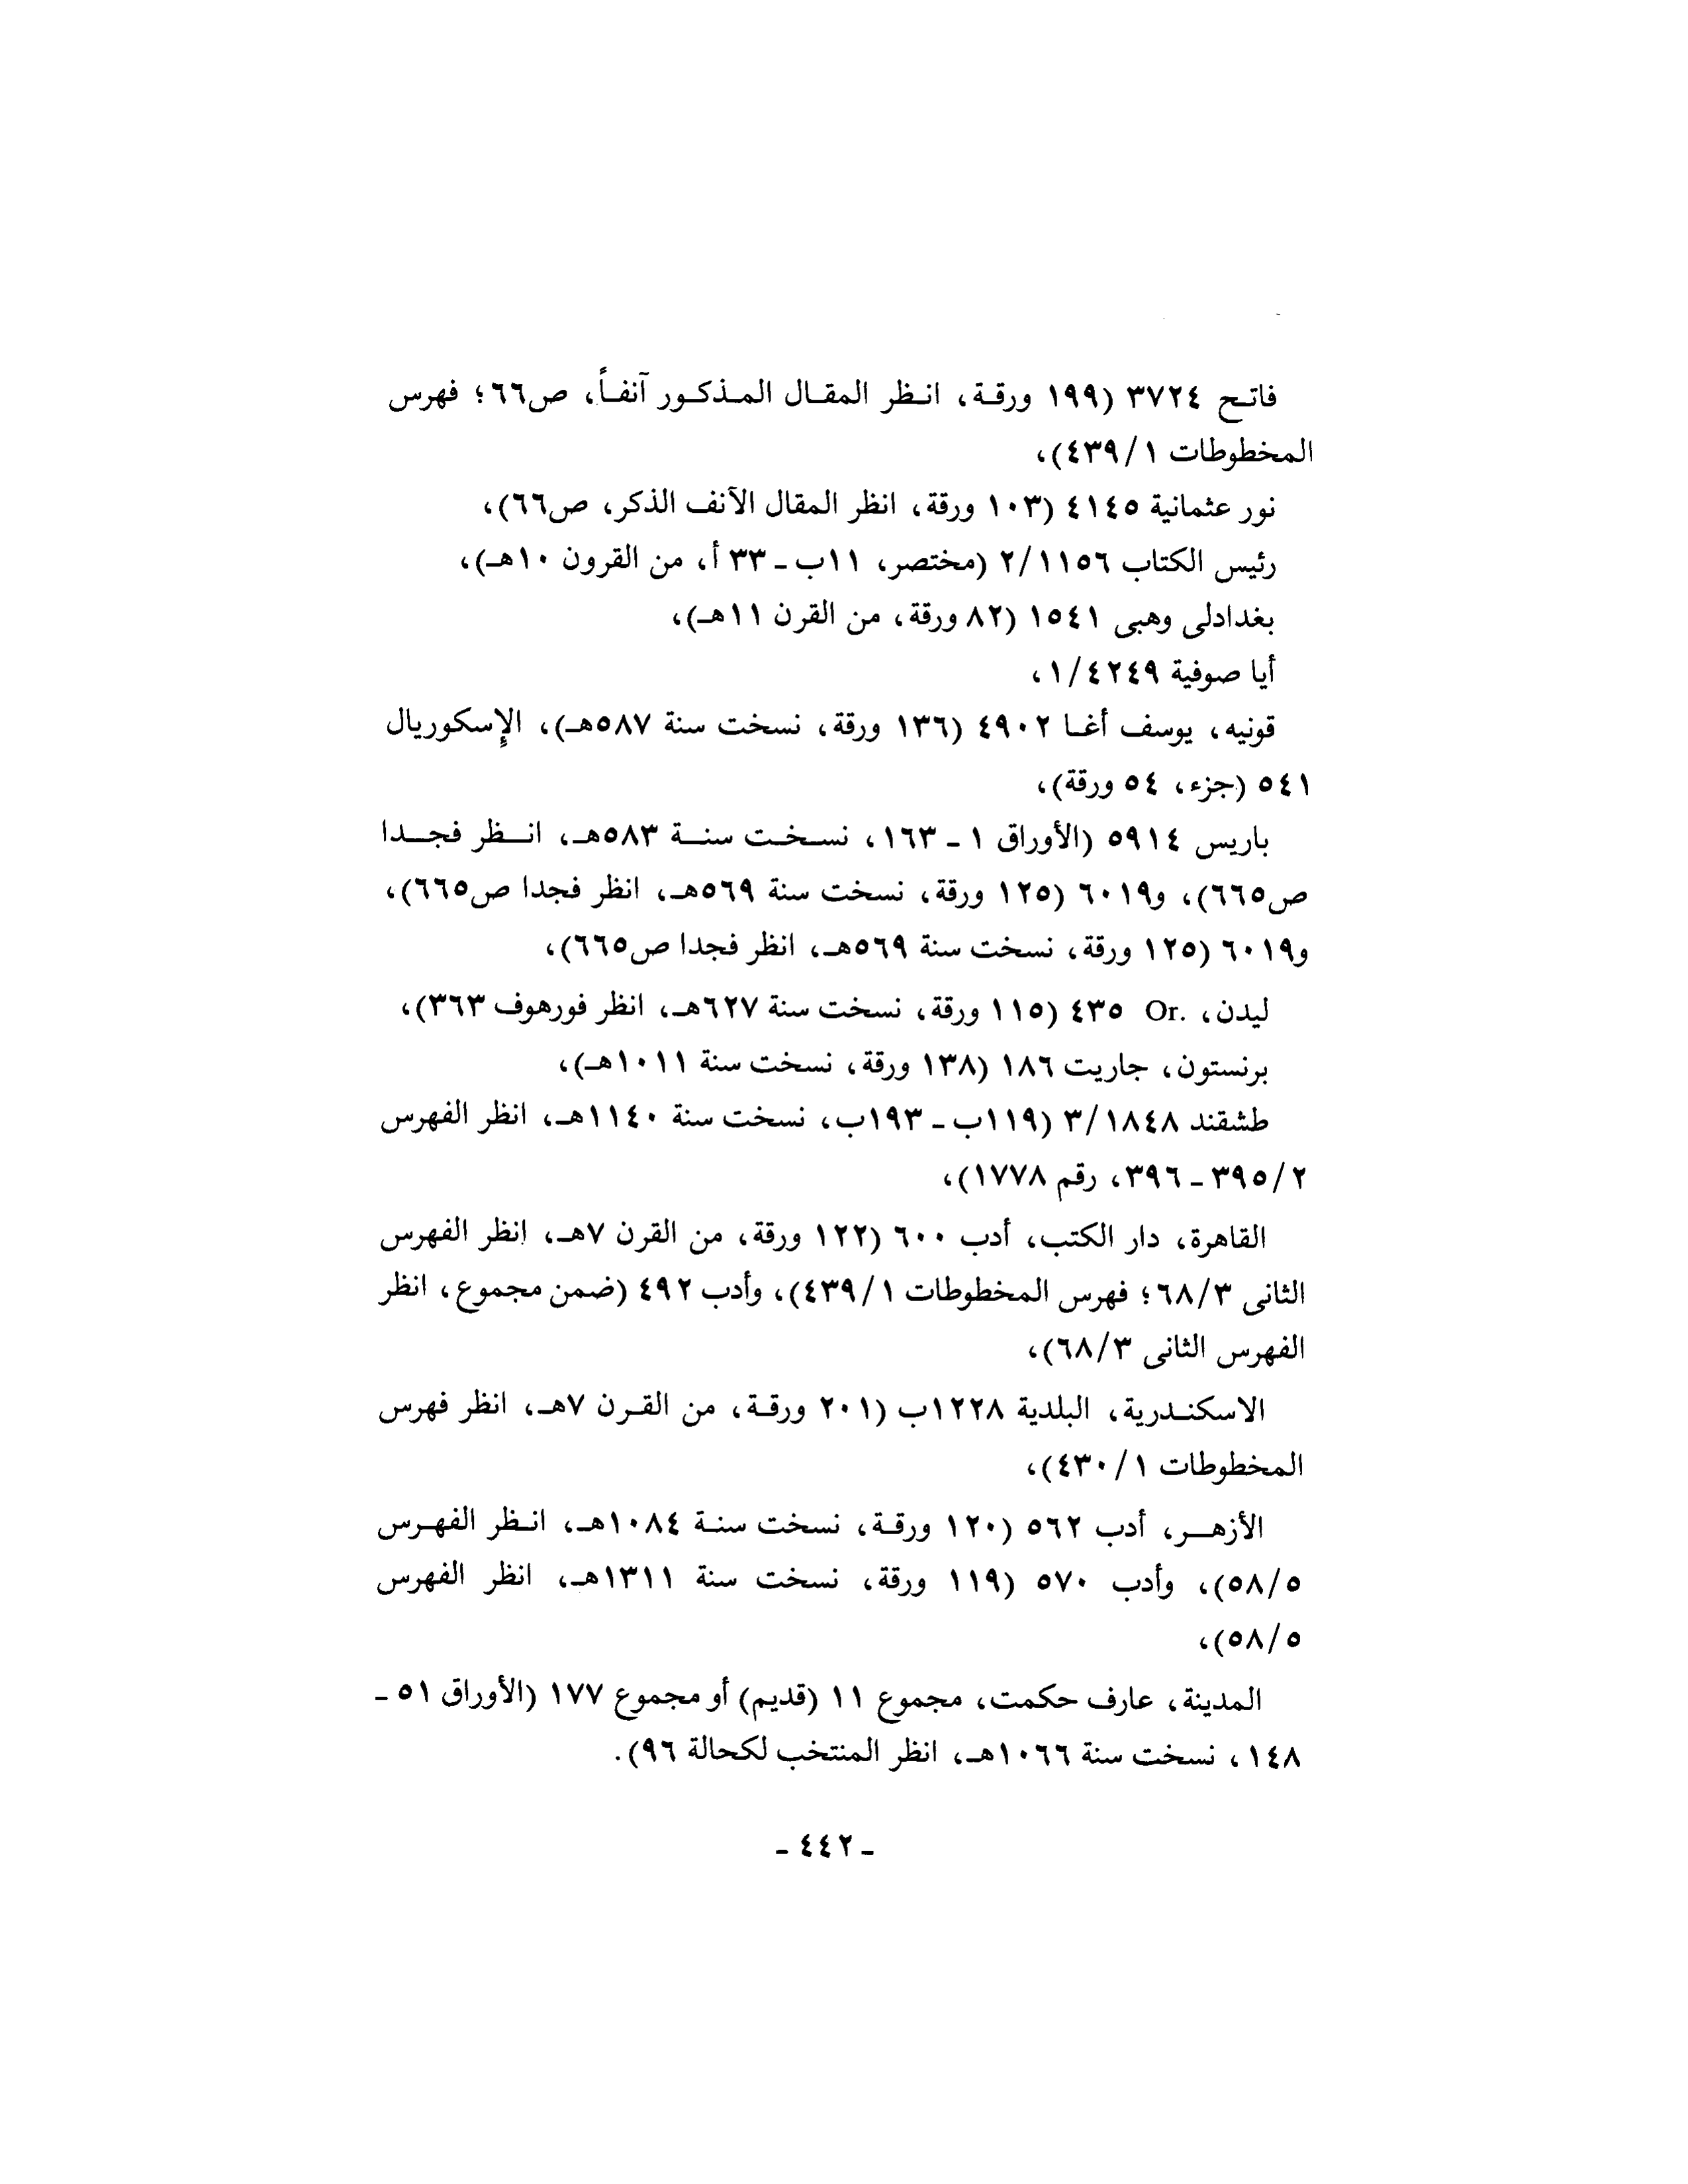 فاتح ٣٧٢٤ (١٩٩ ورقة، انظر المقال المذكور آنفاً، ص٦٦؛ فهرس
المخطوطات ١/ ٤٣٩)،
نور عثمانية ٤١٤٥ (١٠٣ ورقة، انظر المقال الآنف الذكر، ص٦٦)،
رئيس الكتاب ١١٥٦/ ٢ (مختصر، ١١ب ـ ٣٣ أ، من القرون ١٠هـ)،
بغدادلى وهبى ١٥٤١ (٨٢ ورقة، من القرن ١١هـ)،
أيا صوفية ٤٢٤٩/ ١،
قونيه، يوسف أغا ٤٩٠٢ (١٣٦ ورقة، نسخت سنة ٥٨٧هـ)، الإسكوريال
٥٤١ (جزء، ٥٤ ورقة)،
باريس ٥٩١٤ (الأوراق ١ ـ ١٦٣، نسخت سنة ٥٨٣هـ، انظر فجدا
ص٦٦٥)، و٦٠١٩ (١٢٥ ورقة، نسخت سنة ٥٦٩هـ، انظر فجدا ص٦٦٥)،
و٦٠١٩ (١٢٥ ورقة، نسخت سنة ٥٦٩هـ، انظر فجدا ص٦٦٥)،
ليدن، Or. ٤٣٥ (١١٥ ورقة، نسخت سنة ٦٢٧هـ، انظر فورهوف ٣٦٣)،
برنستون، جاريت ١٨٦ (١٣٨ ورقة، نسخت سنة ١٠١١هـ)،
طشقند ١٨٤٨/ ٣ (١١٩ب ـ ١٩٣ب، نسخت سنة ١١٤٠هـ، انظر الفهرس
٢/ ٣٩٥ ـ ٣٩٦، رقم ١٧٧٨)،
القاهرة، دار الكتب، أدب ٦٠٠ (١٢٢ ورقة، من القرن ٧هـ، انظر الفهرس
الثانى ٣/ ٦٨؛ فهرس المخطوطات ١/ ٤٣٩)، وأدب ٤٩٢ (ضمن مجموع، انظر
الفهرس الثانى ٣/ ٦٨)،
الاسكندرية، البلدية ١٢٢٨ب (٢٠١ ورقة، من القرن ٧هـ، انظر فهرس
المخطوطات ١/ ٤٣٠)،
الأزهر، أدب ٥٦٢ (١٢٠ ورقة، نسخت سنة ١٠٨٤هـ، انظر الفهرس
٥/ ٥٨)، وأدب ٥٧٠ (١١٩ ورقة، نسخت سنة ١٣١١هـ، انظر الفهرس
٥/ ٥٨)،
المدينة، عارف حكمت، مجموع ١١ (قديم) أو مجموع ١٧٧ (الأوراق ٥١ ـ
١٤٨، نسخت سنة ١٠٦٦هـ، انظر المنتخب لكحالة ٩٦).
ـ ٤٤٢ ـ